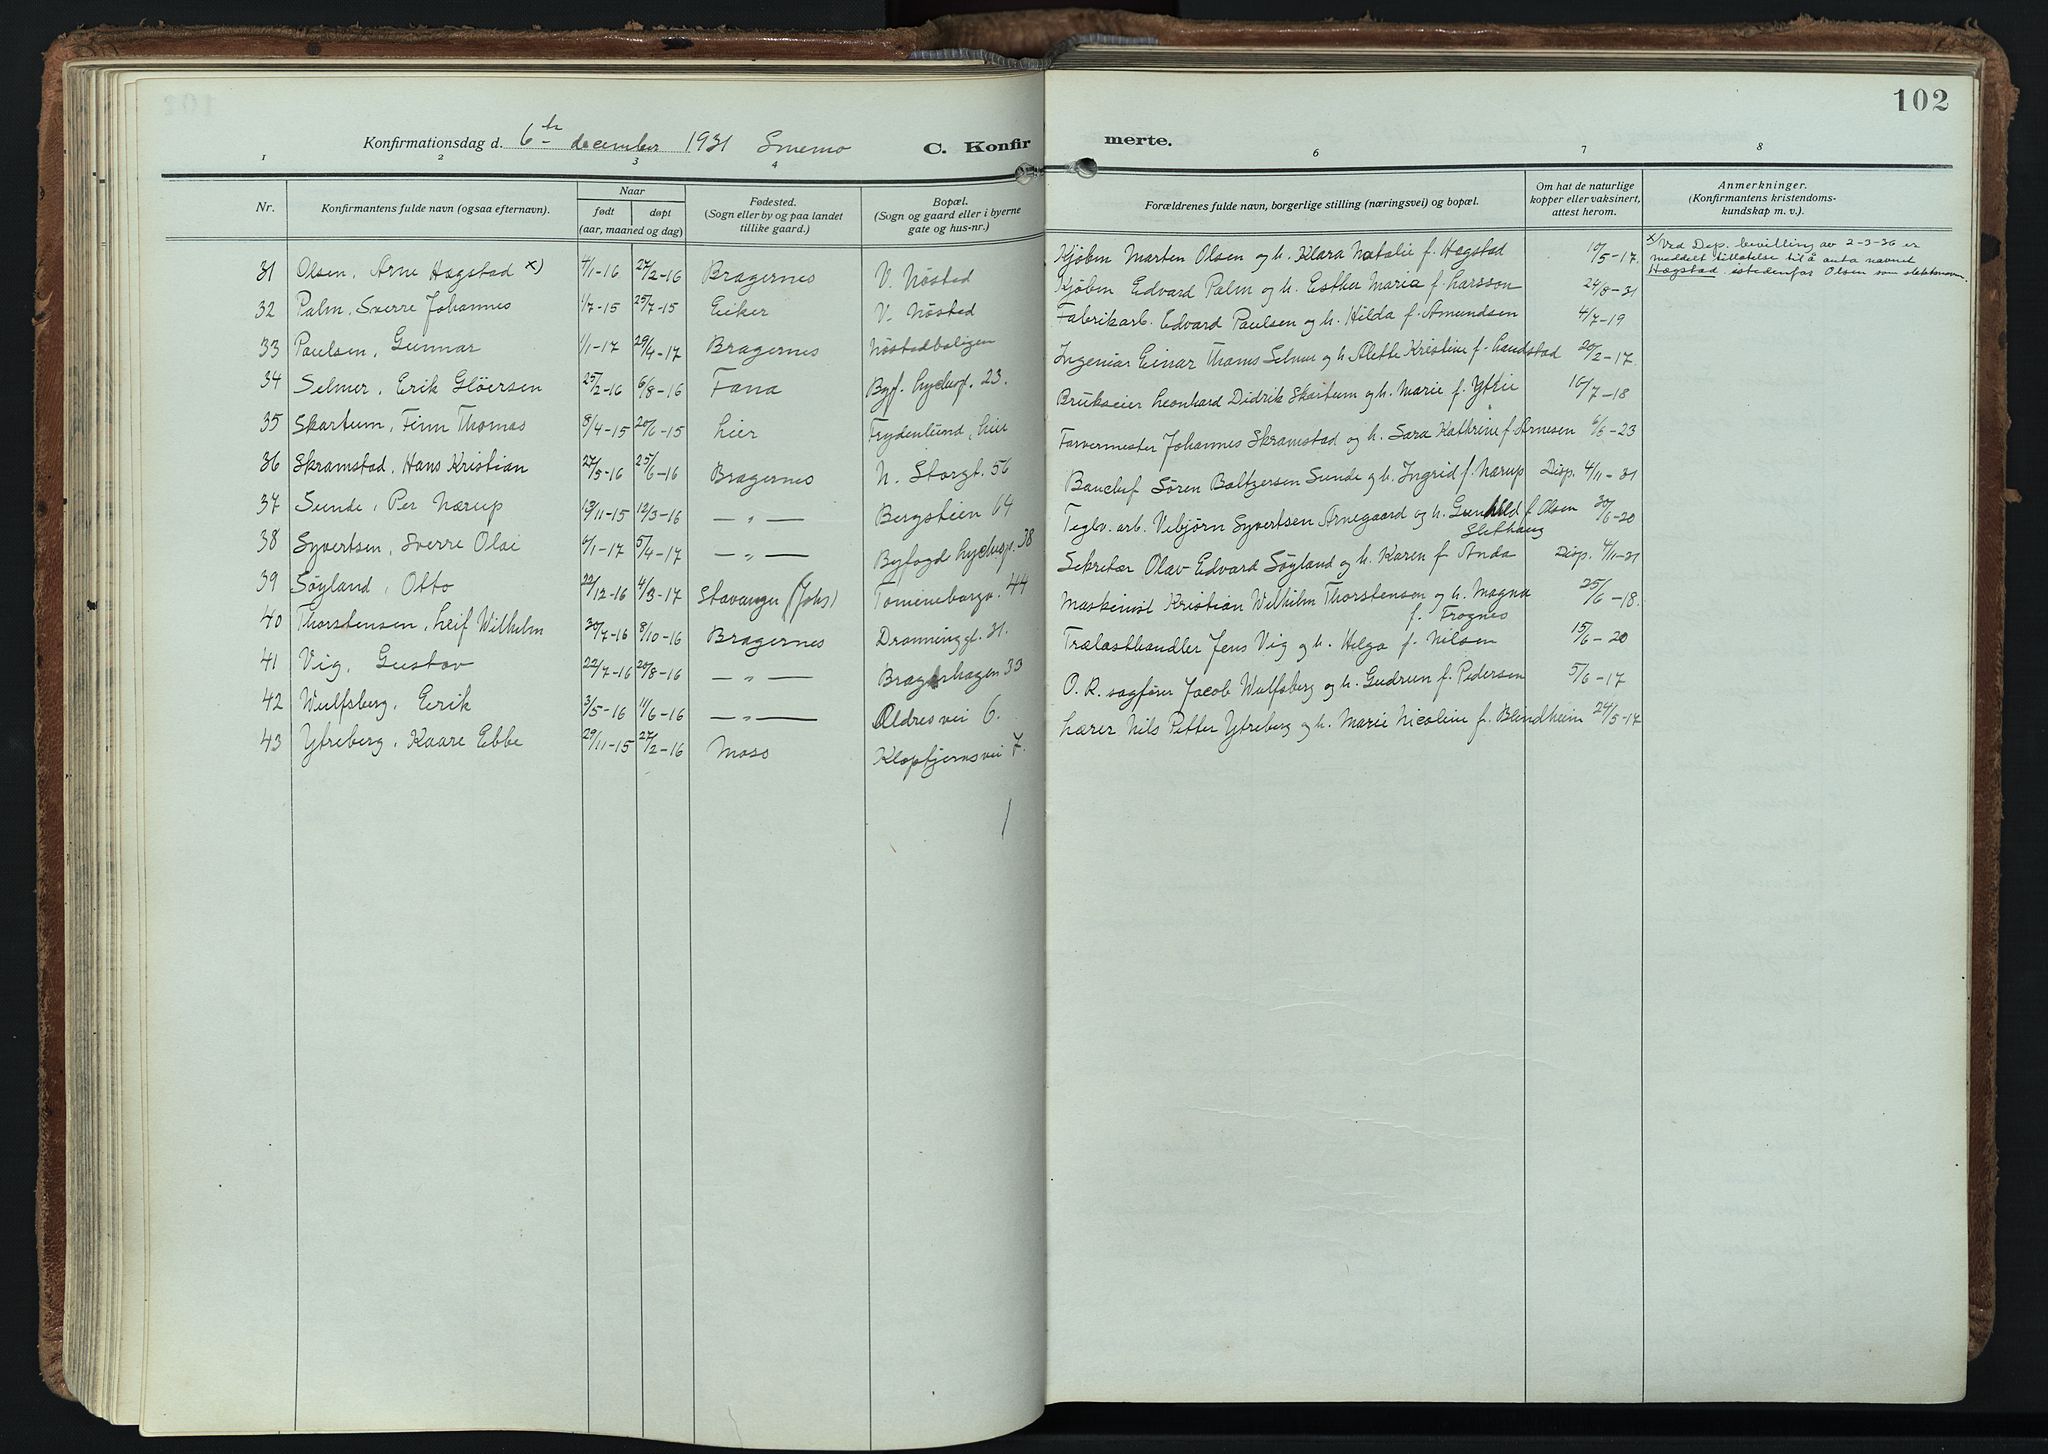 102
Konfirmationsdag d. 6te december 1931 Smemo
C. Konfirmerte.
1 2 3 4 6 7 8
Nr. Konfirmantens fulde navn (ogsaa efternavn). Naar født døpt (aar, maaned og dag) Fødested. (Sogn eller by og paa landet tillike gaard.) Bopæl. (Sogn og gaard eller i byerne gate og hus-nr.) Forældrenes fulde navn, borgerlige stilling (næringsvei) og bopæl. Om hat de naturlige kopper eller vaksinert, attest herom. Anmerkninger. (Konfirmantens kristendomskundskap m. v.).
31 Olsen, Arne Hagstad x) 4/1-16 27/2-16 Bragernes V. Nøsted Kjøbm Marten Olsen og h. Klara Natalie f. Hagstad 10/5-17.
x) Ved Dep. bevilling av 2-3-36 er
meddelt tillatelse til å anta navnet
Hagstad istedenfor Olsen som slektsnavn.
32 Palm, Sverre Johannes 1/7-15 25/7-15 Eiker V. Nøsted Kjøbm Edvard Palm og h. Esther Maria f. Larsson 24/8-31
33 Paulsen, Gunnar 1/1-17 29/4-17 Bragernes Nøstedboligen Fabrikarb. Edvard Paulsen og h. Hilda f. Amundsen 4/7-19
34 Selmer, Erik Gløersen 25/2-16 6/8-16 Fana Byf. Lychesg. 23. Ingeniør Einar Thams Selmer og h. Alette Kristine f. Landstad 20/2-17.
35 Skartum, Finn Thomas 8/4-15 20/6-15 Lier Frydenlund, Lier Brukseier Leonhard Didrik Skartum og h. Marie f. 10/7-18
36 Skramstad, Hans Kristian 27/5-16 25/6-16 Bragernes N. Storgt. 56 Farvermester Johannes Skramstad og h. Sara Kathrine f. Arnesen 6/6-23
37 Sunde, Per Nærup 13/11-15 12/3-16 — " — Bergstien 64 Banchef Søren Baltzersen Sunde og h. Ingrid f. Nærup Disp. 4/11-31
38 Syvertsen, Sverre Olai 6/1-17 5/4-17 — " — Byfogd Lychesg. 38 Teglv. arb. Vebjørn Syvertsen Arnegaard og h. Gunhild f. Olsen 30/6-20
Slethaug
39 Søyland, Otto 22/12-16 4/3-17 Stavanger (Johs) Tomineborgv. 44 Sekretær Olav Edvard Søyland og h. Karen f. Anda Disp. 4/11-31
40 Thorstensen, Leif Wilhelm 30/7-16 8/10-16 Bragernes Dronninggt. 31. Maskinist Kristian Wilhelm Thorstensen og h. Magna 25/6-18.
f. Frognes
41 Vig, Gustav 22/7-16 20/8-16 — " — Bragerhagen 33 Trælasthandler Jens Vig og h. Helga f. Nilsen 15/6-20
42 Wulfsberg, Erik 3/5-16 11/6-16 — " — Oldres vei 6. O. R. sagfører Jacob Wulfsberg og h. Gudrun f. Pedersen 5/6-17
43 Ytreberg, Kaare Ebbe 29/11-15 27/2-16 Moss Kloptjernsvei 7. Lærer Nils Petter Ytreberg og h. Marie Nicoline f. Blindheim 24/5-17